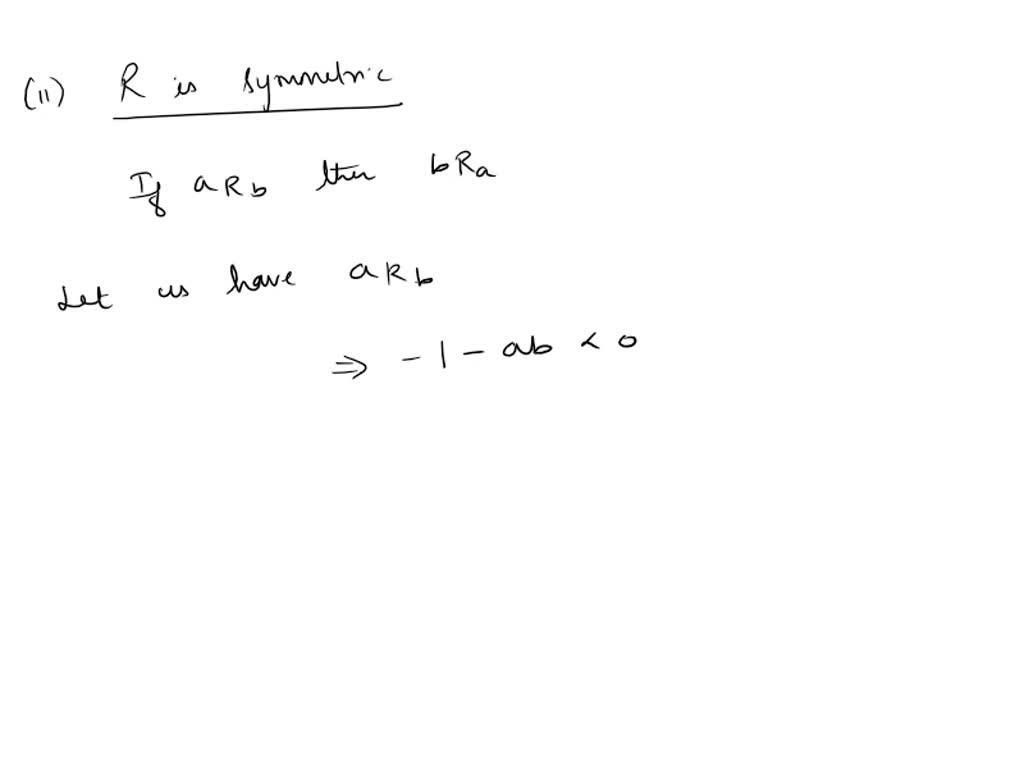 (11) R is symmetric
If aRb then bRa
Let us have aRb
⇒ -1 - ab < 0